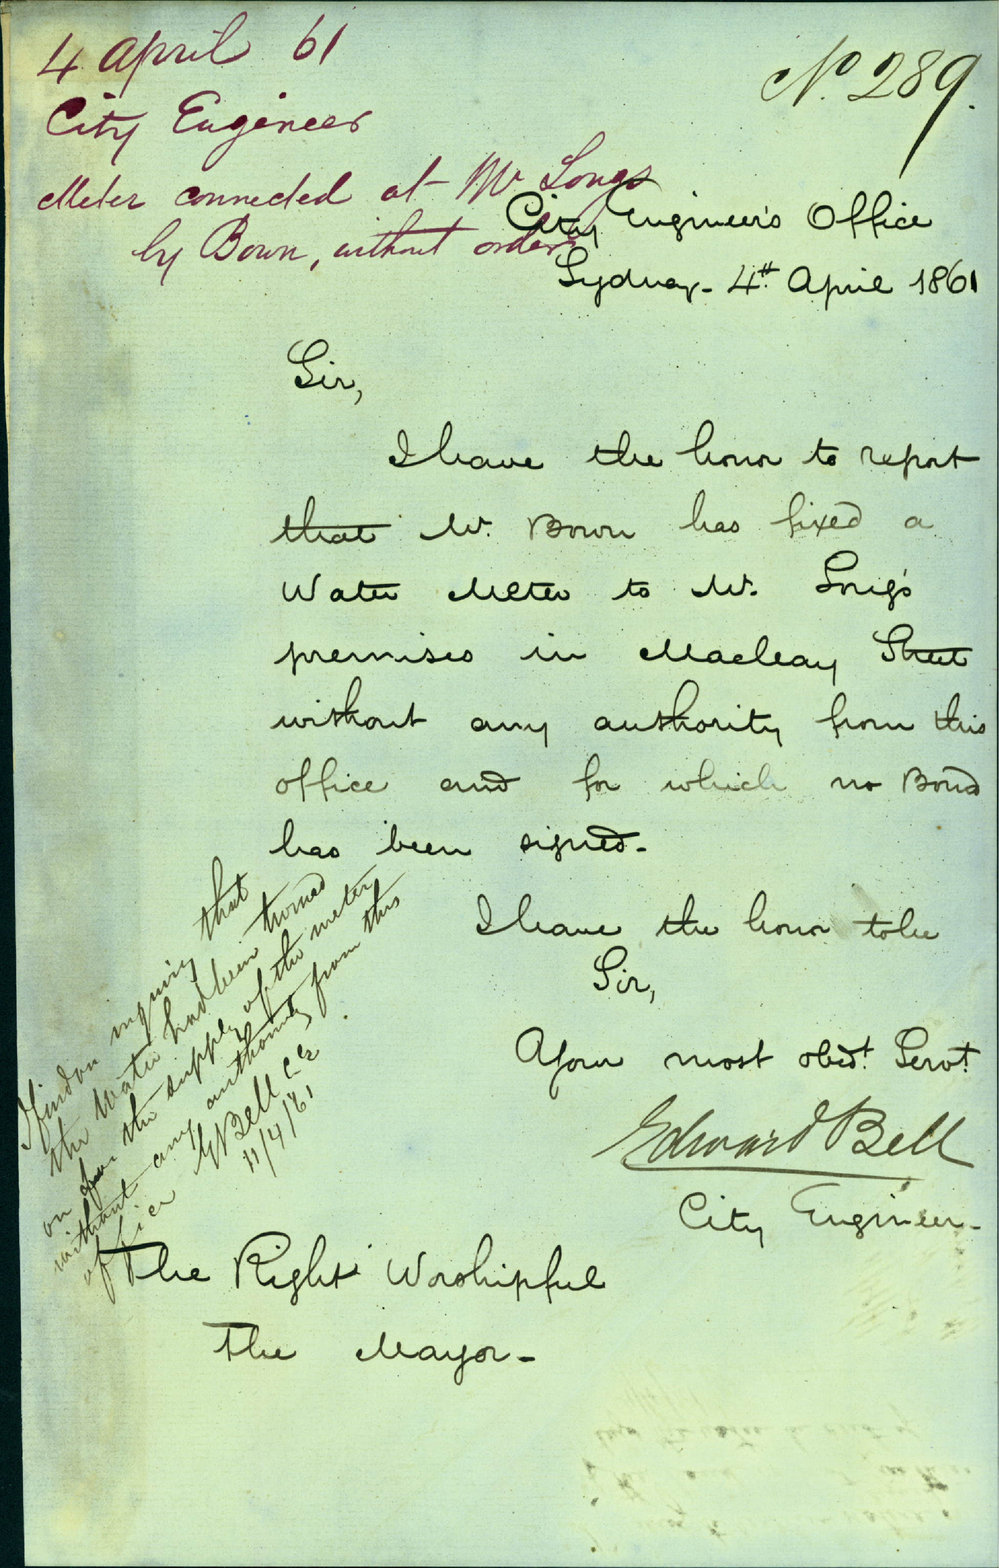 4 April 61
City Engineer
Meter connected at Mr Longs
by Bown, without orders
No. 289.
City Engineer's Office
Sydney - 4th April 1861
Sir,
I have the honor to report
that Mr. Bown has fixed a
Water Meter to Mr. Long's
premises in Macleay Street
without any authority from this
office and for which no Bond
has been signed -
I have the honor to be
Sir,
Your most obedt. Servt.
Edward Bell
City Engineer -
The Right Worshipful
The Mayor -
I find on inquiry that
the Water had been turned
on for the supply of the meter
without any authority from this
office
Bell CE
11/4/61